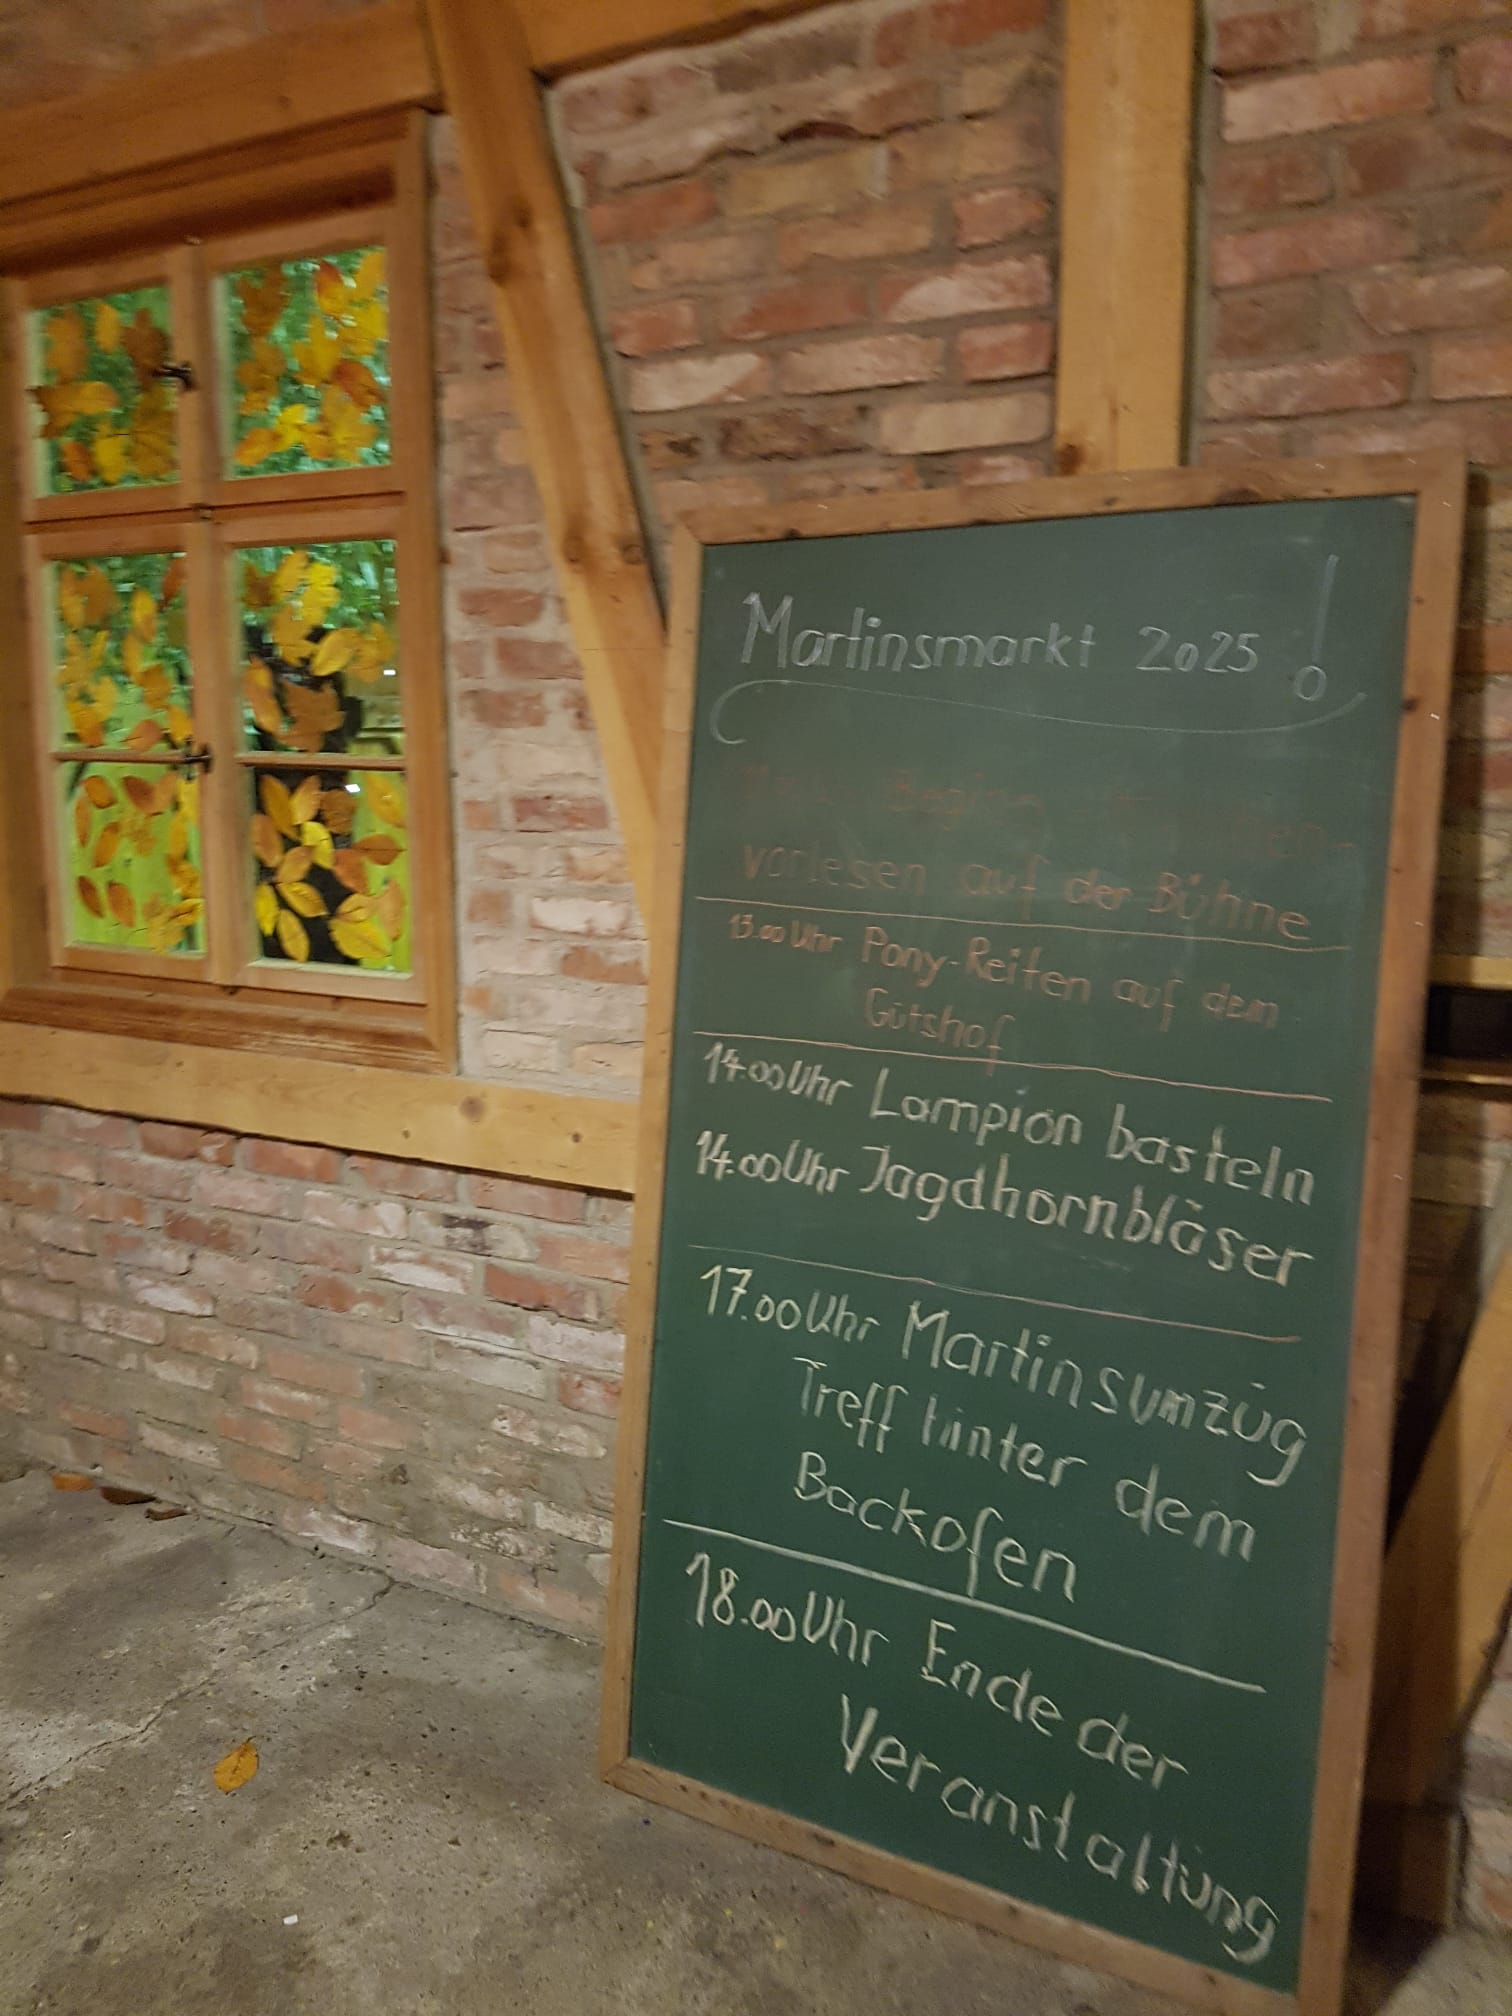 Martinsmarkt 2025!
Beginn
vorlesen auf der Bühne
13.00 Uhr Pony-Reiten auf dem
Gutshof
14.00 Uhr Lampion basteln
14.00 Uhr Jagdhornbläser
17.00 Uhr Martinsumzug
Treff hinter dem
Backofen
18.00 Uhr Ende der
Veranstaltung